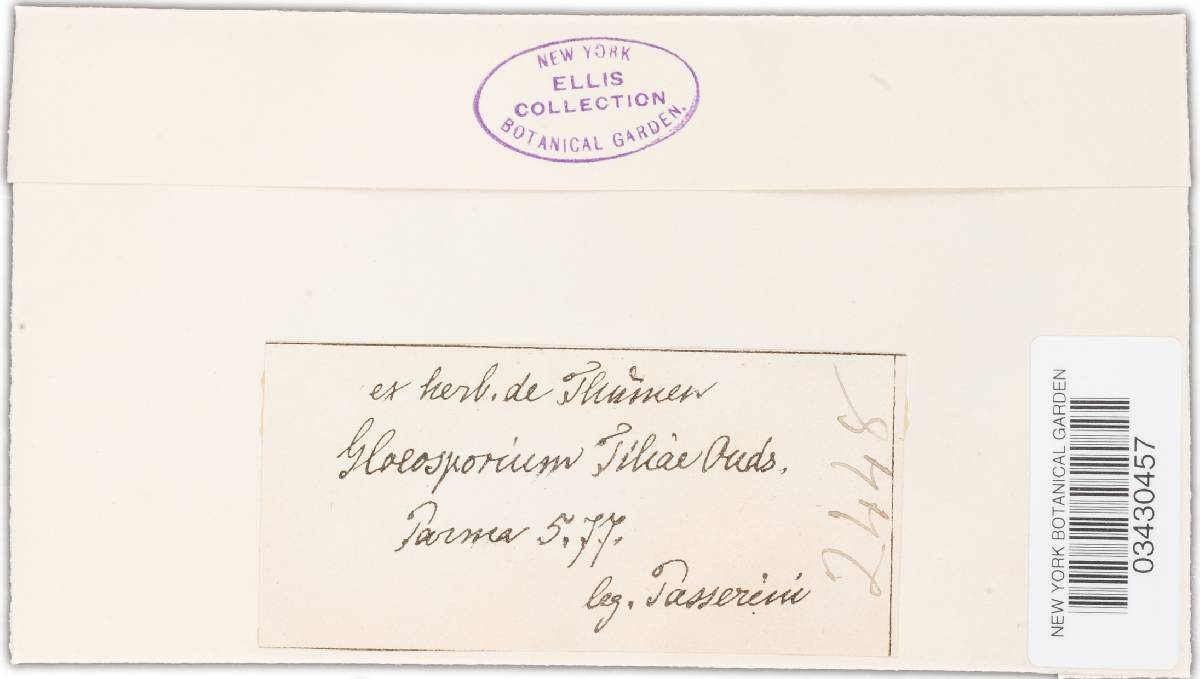 NEW YORK
ELLIS
COLLECTION
BOTANICAL GARDEN.
ex herb. de Thümen
Gloeosporium Tiliae Ouds.
Parma 5.77.
leg. Passerini
2448
NEW YORK BOTANICAL GARDEN
03430457